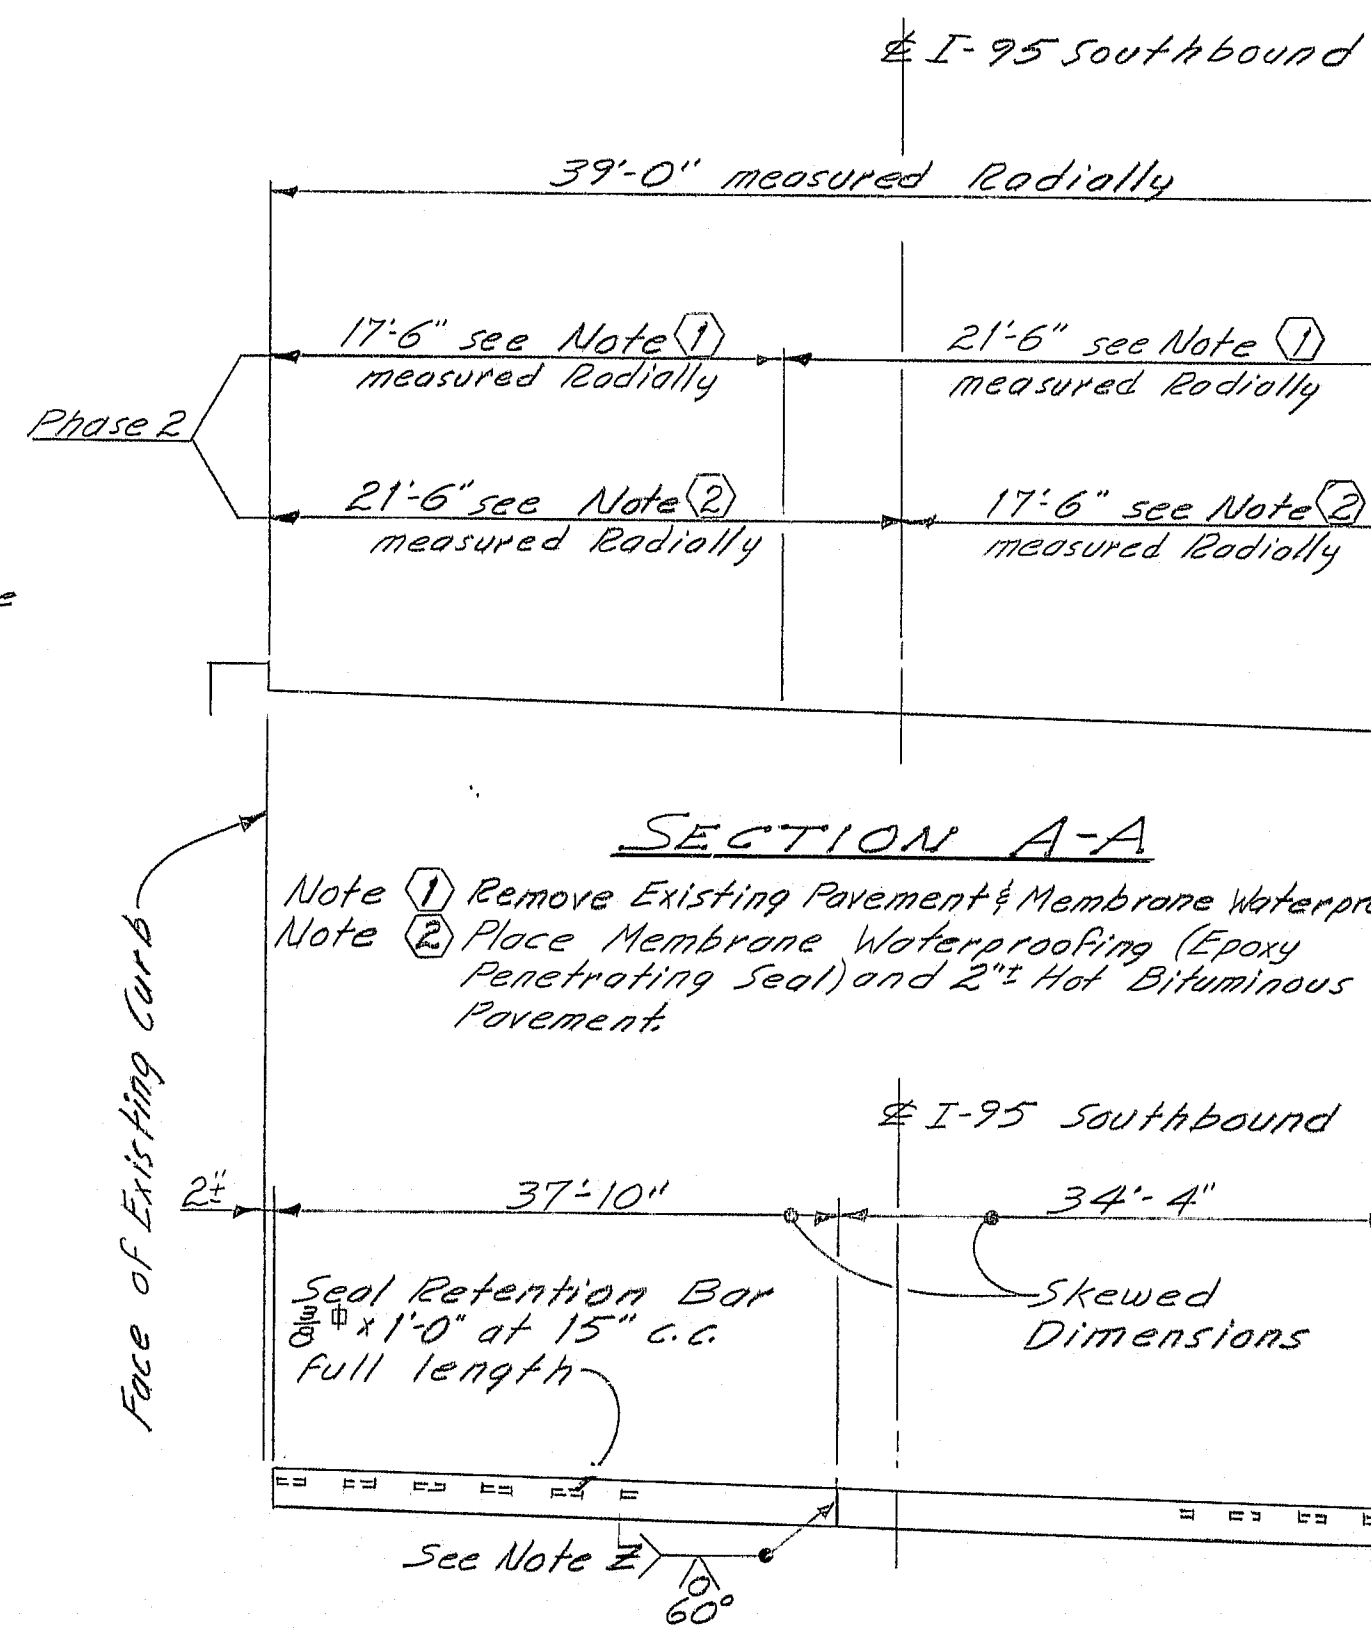 ℄ I-95 Southbound
39'-0" measured Radially
17'-6" see Note 1
measured Radially
21'-6" see Note 1
measured Radially
Phase 2
21'-6" see Note 2
measured Radially
17'-6" see Note 2
measured Radially
SECTION A-A
Note 1 Remove Existing Pavement & Membrane Waterpro
Note 2 Place Membrane Waterproofing (Epoxy
Penetrating Seal) and 2"± Hot Bituminous
Pavement.
Face of Existing Curb
℄ I-95 Southbound
2"±
37'-10"
34'-4"
Seal Retention Bar
3/8" ⌀ x 1'-0" at 15" c.c.
full length
Skewed
Dimensions
See Note Z
0
60°